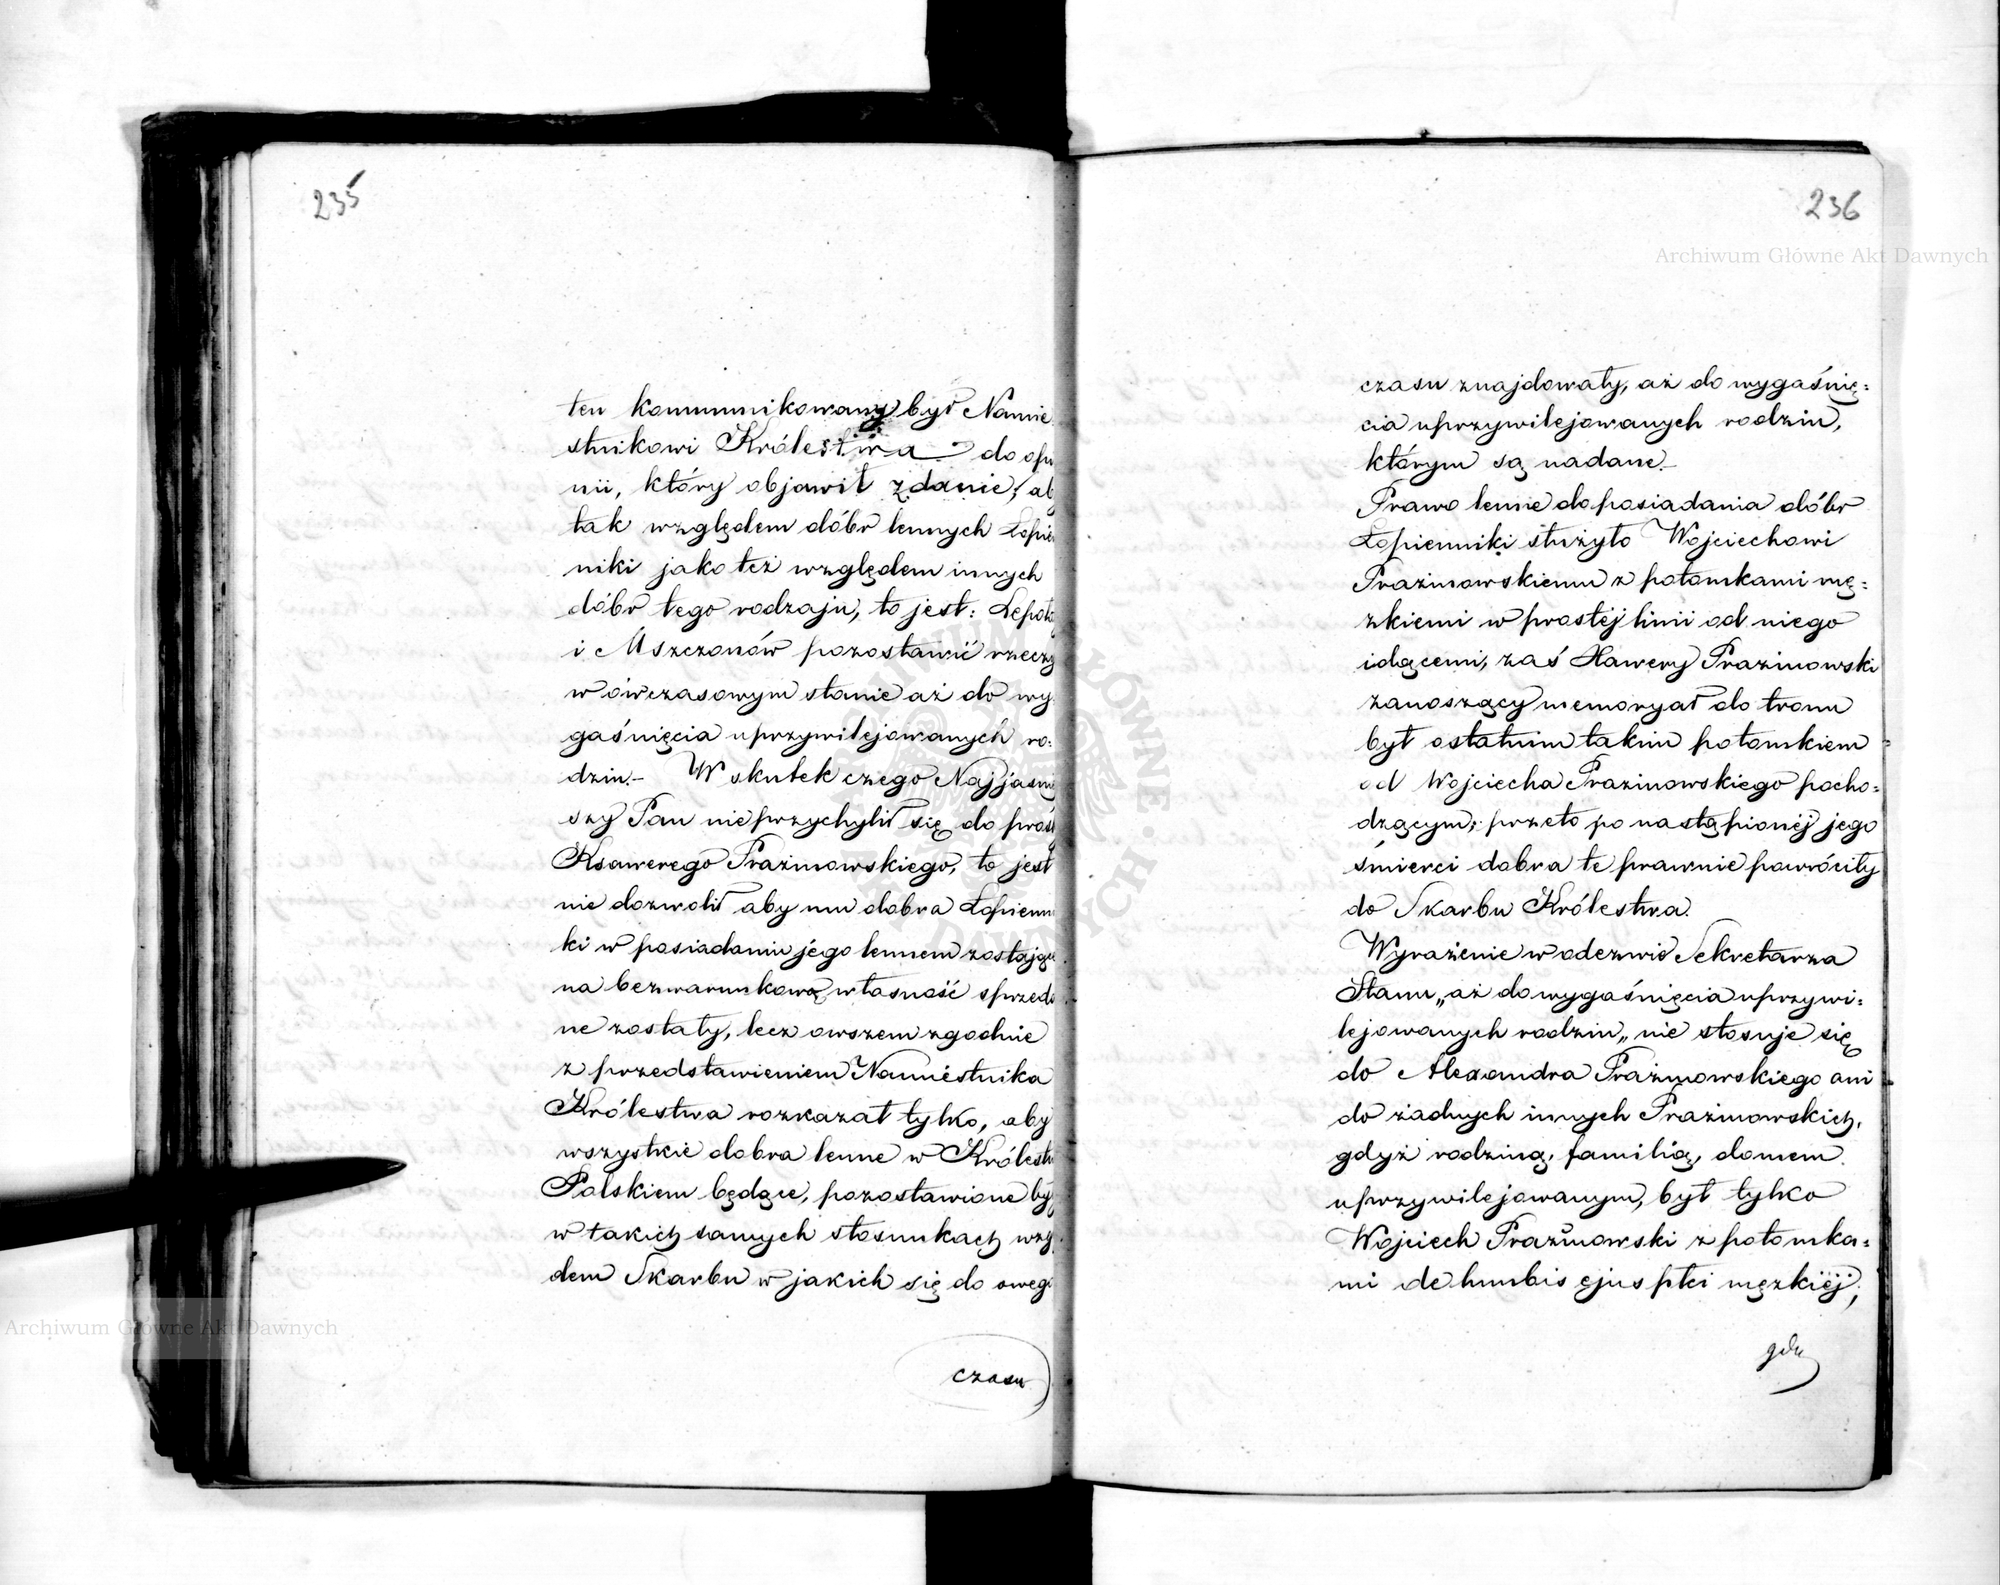 235
ten kommunikowany był Namie
stnikowi Królestwa do opi
nii, który objawił zdanie, ab
tak względem dóbr lennych Łopie
niki jako też względem innych
dóbr tego rodzaju, to jest: Lepoła
i Mszczonów pozostawić rzeczy
w ówczasowym stanie aż do wy
gaśnięcia uprzywilejowanych ro=
dzin.– W skutek czego Najjaśni
szy Pan nieprzychylił się do prośb
Ksawerego Prażmowskiego, to jest
nie dozwolił aby mu dobra Łopienn
ki w posiadaniu jego lennem zostając
na bezwarunkową własność sprzeda
ne zostały, lecz owszem zgodnie
z przedstawieniem Namiéstnika
Królestwa rozkazał tylko, aby
wszystkie dobra lenne w Królestw
Polskiem będące, pozostawione by
w takich samych stosunkach wzg
dem Skarbu w jakich się do oweg
czasu
236
Archiwum Główne Akt Dawnych
czasu znajdowały, aż do wygaśnię=
cia uprzywilejowanych rodzin,
którym są nadane.–
Prawo lenne do posiadania dóbr
Łopienniki służyło Wojciechowi
Prażmowskiemu z potomkami mę=
zkiemi w prostéj linii od niego
idącemi, zaś Xawery Prażmowski
zanoszący memoryał do tronu
był ostatnim takim potomkiem
od Wojciecha Prażmowskiego pocho=
dzącym; przeto po nastąpionéj jego
śmierci dobra te prawnie powróciły
do Skarbu Królestwa.
Wyrażenie w odezwie Sekretarza
Stanu „aż do wygaśnięcia uprzywi=
lejowanych rodzin„ nie stosuje się
do Alexandra Prażmowskiego ani
do żadnych innych Prażmowskich,
gdyż rodziną, familią, domem
uprzywilejowanym, był tylko
Wojciech Prażmowski z potomka=
mi de lumbis ejus płci męzkiéj,
gdy
Archiwum Główne Akt Dawnych